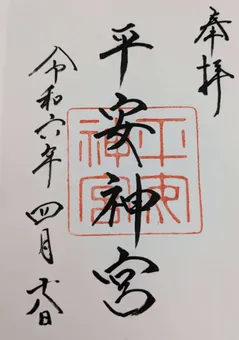 奉拝
平安神宮
平安神宮
令和六年四月十八日